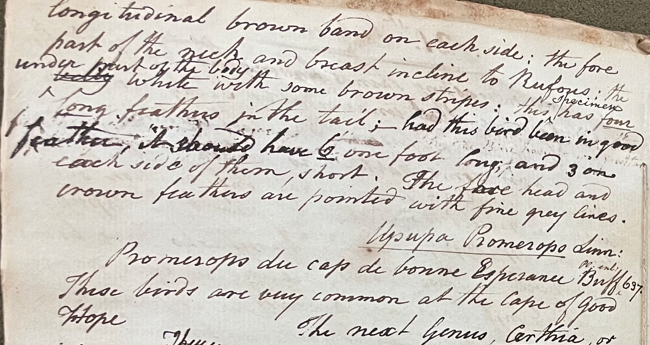 longitudinal brown band on each side: the fore
part of the neck and breast incline to Rufous: the
under part of the body white with some brown stripes: this specimen has four
long feathers in the tail; had this bird been in good
feather, it should have 6 one foot long, and 3 on
each side of them, short. The fore head and
crown feathers are pointed with fine grey lines.
Upupa Promerops Linn:
Promerops du cap de bonne Esperance Buff. 637.
These birds are very common at the Cape of Good
Hope
The next Genus, Certhia, or